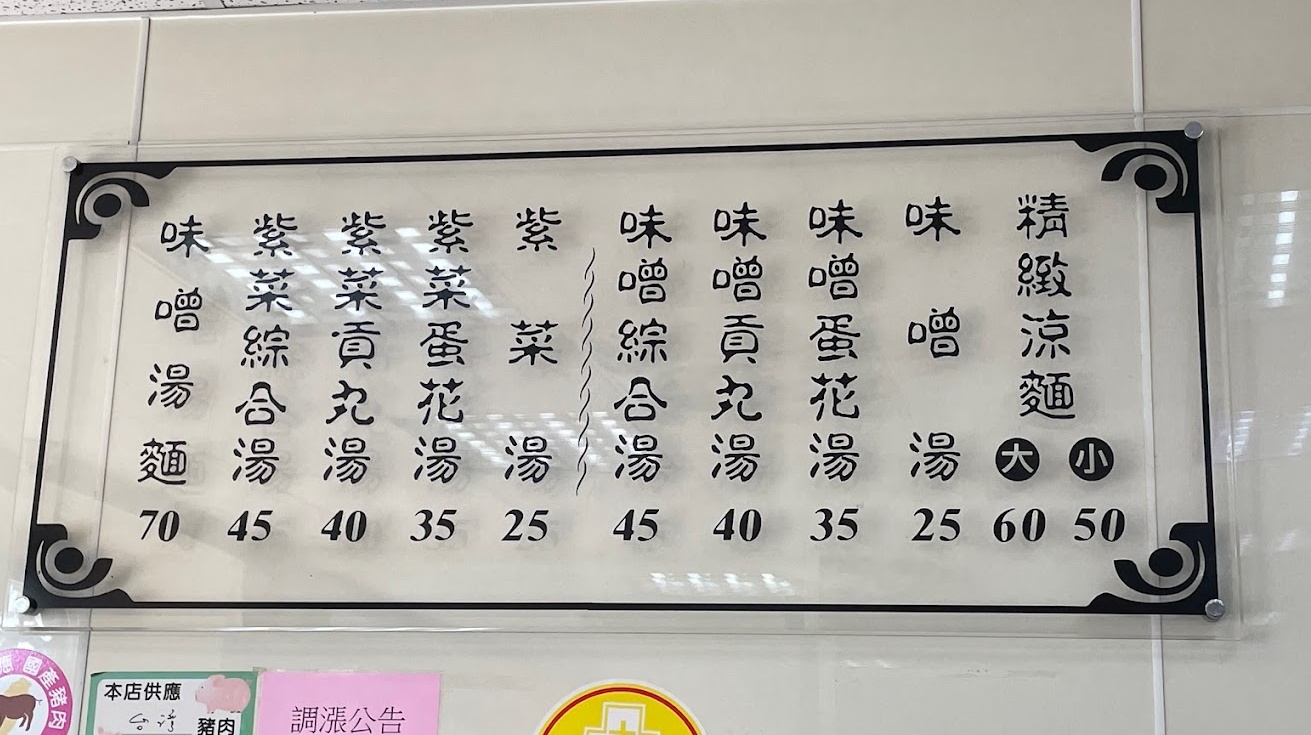 精緻涼麵
大 60
小 50
味噌湯 25
味噌蛋花湯 35
味噌貢丸湯 40
味噌綜合湯 45
紫菜湯 25
紫菜蛋花湯 35
紫菜貢丸湯 40
紫菜綜合湯 45
味噌湯麵 70
國產豬肉
本店供應
台灣
豬肉
調漲公告